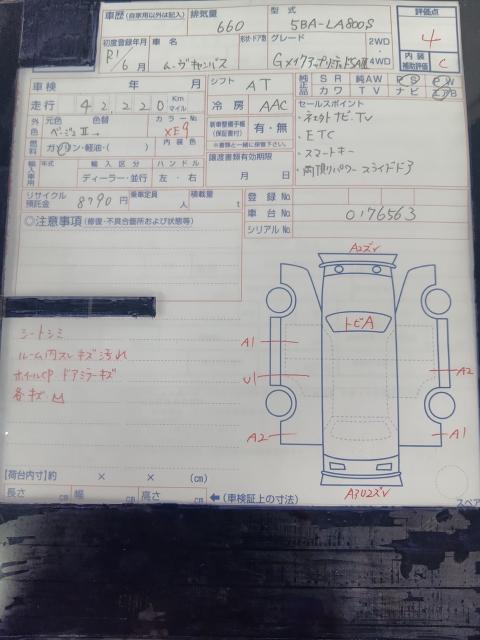 車歴 (自家用以外は記入) 排気量 660 型式 5BA-LA800S 評価点 4
初度登録年月 R1/6月 車名 ムーヴキャンバス 形状・ドア数 グレード 2WD 4WD 内装補助評価 C
車検 年 月 シフト AT 純正品 SR 純AW PS PW
カワ TV ナビ エアB
走行 42,220 Km マイル 冷房 AAC セールスポイント
・ネット ナビ.TV
・ETC
・スマートキー
・両側パワースライドドア
外色 元色 ベージュII 色替 カラーNo. XE9 内装色
新車整備手帳(保証書付) 有・無
※書類と一緒に保管下さい。
燃料 ガソリン・軽油・( )
譲渡書類有効期限 月 日
輸入車用 年式 輸入区分 ハンドル
ディーラー・並行 左・右
リサイクル預託金 8790円 乗車定員 人 積載量 t
登録No.
車台No. 0176563
シリアルNo.
◎注意事項 (修復・不具合箇所および状態等)
シートシミ
ルーム内スレキズ汚れ
ホイールCP ドアミラーキズ
各キズ凹
A2ズV
トビA
A1
U1
A2
A2
A1
A3U2ズV
【荷台内寸】約 × × (cm)
長さ cm 幅 cm 高さ cm ← (車検証上の寸法)
スペア